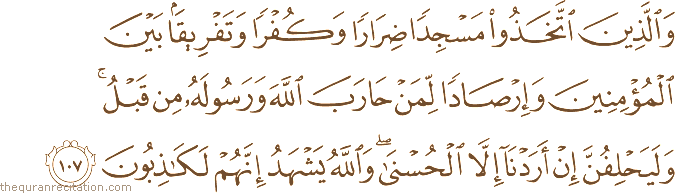 وَٱلَّذِينَ ٱتَّخَذُوا۟ مَسْجِدًا ضِرَارًا وَكُفْرًا وَتَفْرِيقًۢا بَيْنَ
ٱلْمُؤْمِنِينَ وَإِرْصَادًا لِّمَنْ حَارَبَ ٱللَّهَ وَرَسُولَهُۥ مِن قَبْلُ ۚ
وَلَيَحْلِفُنَّ إِنْ أَرَدْنَآ إِلَّا ٱلْحُسْنَىٰ ۖ وَٱللَّهُ يَشْهَدُ إِنَّهُمْ لَكَـٰذِبُونَ ١٠٧
thequranrecitation.com